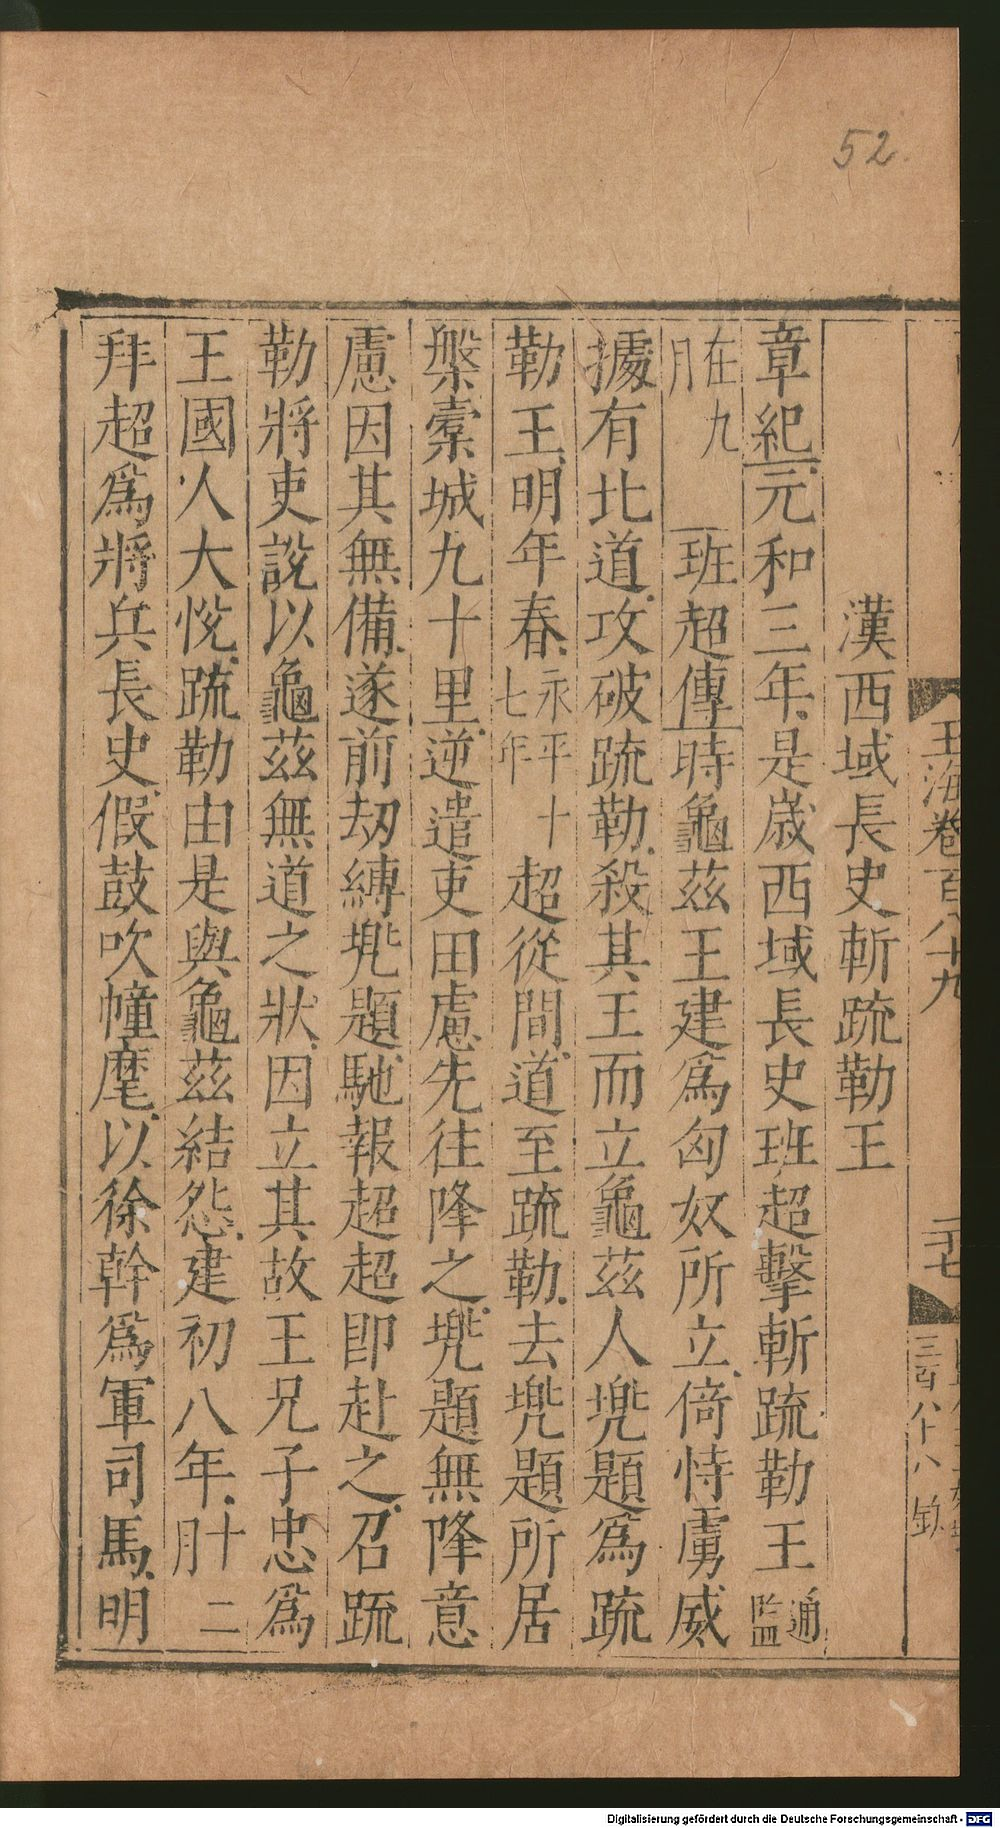 52
玉海卷百八十九
二十七
三百八十八
漢西域長史斬疏勒王
章紀元和三年是歲西域長史班超擊斬疏勒王通監
在九月班超傳時龜茲王建爲匈奴所立倚恃虜威
據有北道攻破疏勒殺其王而立龜茲人兠題爲疏
勒王明年春永平十七年超從間道至疏勒去兠題所居
槃橐城九十里逆遣吏田慮先往降之兠題無降意
慮因其無備遂前劫縛兠題馳報超超即赴之召疏
勒將吏說以龜茲無道之狀因立其故王兄子忠爲
王國人大悅疏勒由是與龜茲結怨建初八年十二月
拜超爲將兵長史假鼓吹幢麾以徐幹爲軍司馬明
Digitalisierung gefördert durch die Deutsche Forschungsgemeinschaft - DFG